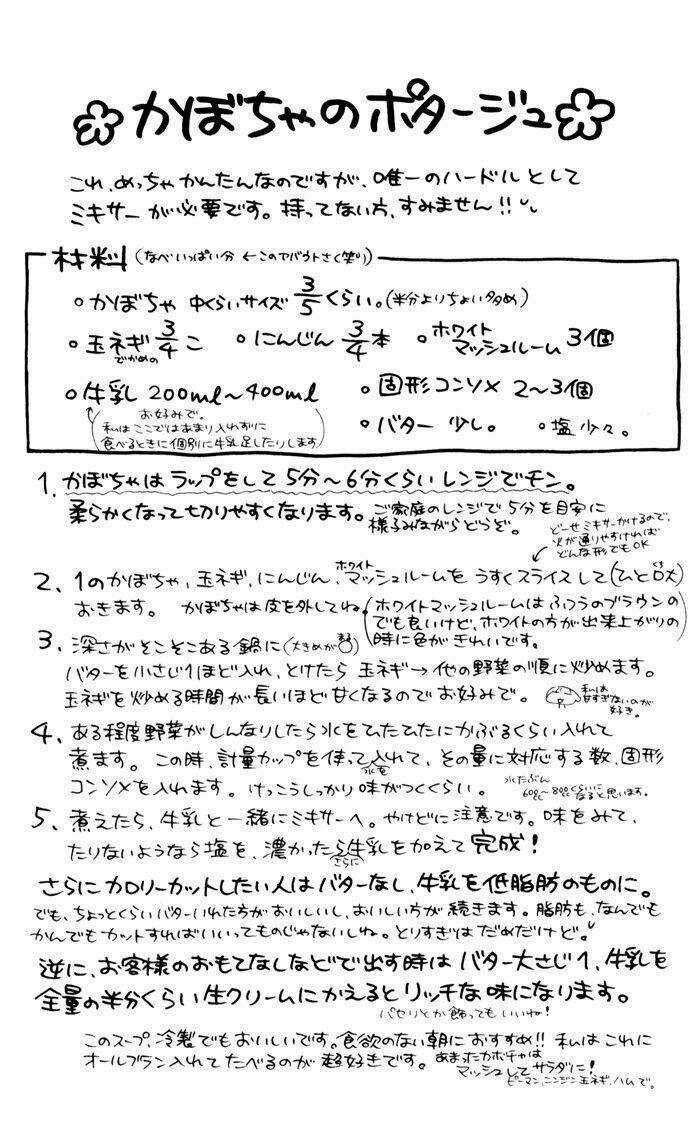 かぼちゃのポタージュ
これ、めっちゃかんたんなのですが、唯一のハードルとして
ミキサーが必要です。持ってない方、すみません!!
材料(なべいっぱい分 ←このアバウトさく笑())
。かぼちゃ 中くらいサイズ 3/5くらい。(半分よりちょい多め)
。玉ネギ 3/4こ 。にんじん 3/4本 。ホワイトマッシュルーム 3個
でかめの
。牛乳 200ml〜400ml 。固形コンソメ 2〜3個
お好みで。
私はここではあまり入れずに
食べるときに個別に牛乳足したりします
。バター 少し。 。塩 少々。
1. かぼちゃはラップをして5分〜6分くらいレンジでチン。
柔らかくなって切りやすくなります。ご家庭のレンジで5分を目安に
様子みながらどうぞ。
どーせミキサーかけるので、
火が通りやすければ
どんな形でもOK
2. 1のかぼちゃ、玉ネギ、にんじん、ホワイトマッシュルームをうすくスライスして(ひと口大)
おきます。 かぼちゃは皮を外してね。
ホワイトマッシュルームはふつうのブラウンの
でも良いけど、ホワイトの方が出来上がりの
時に色がきれいです。
3. 深さがそこそこある鍋に(大きめが)
バターを小さじ1ほど入れ、とけたら 玉ネギ→他の野菜の順に炒めます。
玉ネギを炒める時間が長いほど甘くなるのでお好みで。
私は
甘すぎないのが
好き。
4. ある程度野菜がしんなりしたら水をひたひたにかぶるくらい入れて
煮ます。この時、計量カップを使って水を入れて、その量に対応する数、固形
コンソメを入れます。けっこうしっかり味がつくくらい。
水たぶん
600cc〜800ccくらいに
なると思います。
5. 煮えたら、牛乳と一緒にミキサーへ。やけどに注意です。味をみて、
たりないようなら塩を、濃かったらさらに牛乳を加えて完成!
さらにカロリーカットしたい人はバターなし、牛乳を低脂肪のものに。
でも、ちょっとくらいバターいれた方がおいしいし、おいしい方が続きます。脂肪も、なんでも
かんでもカットすればいいってものじゃないしね。とりすぎはだめだけど。
逆に、お客様のおもてなしなどで出す時はバター大さじ1、牛乳を
全量の半分くらい生クリームにかえるとリッチな味になります。
パセリとか飾ってもいいね!
このスープ、冷製でもおいしいです。食欲のない朝におすすめ!! 私はこれに
オールブラン入れてたべるのが超好きです。
あまったカボチャは
マッシュしてサラダに!
ピーマン、ニンジン、玉ネギ、ハムで。